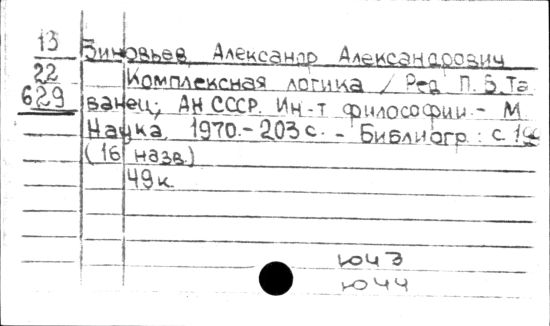 13
22
629
Зиновьев, Александр Александрович
Комплексная логика / Ред. П. В. Та
ванец; АН СССР. Ин-т философии. - М.
Наука, 1970. - 203 с. - Библиогр.: с.
(16 назв.)
49к.
юч3
юч4